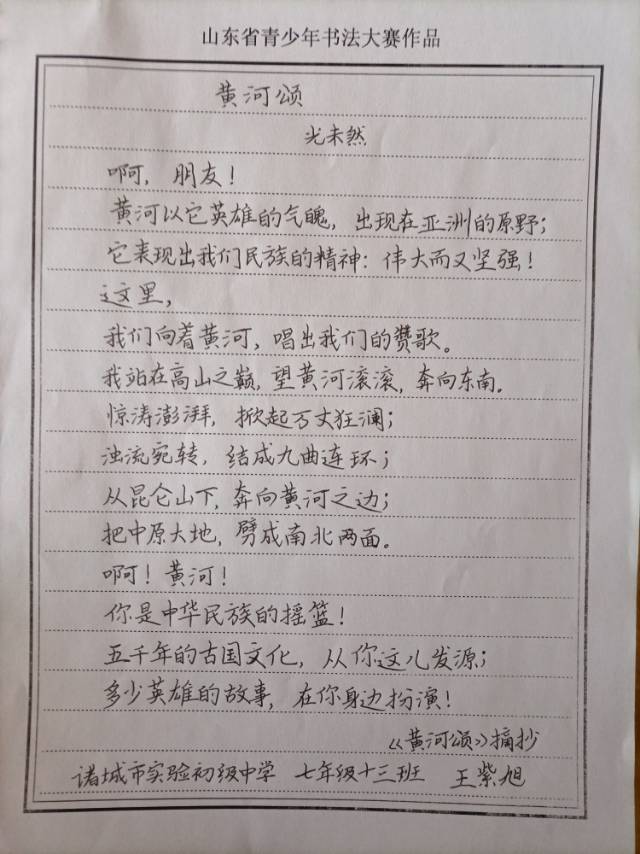 山东省青少年书法大赛作品
黄河颂
光未然
啊，朋友！
黄河以它英雄的气魄，出现在亚洲的原野；
它表现出我们民族的精神：伟大而又坚强！
这里，
我们向着黄河，唱出我们的赞歌。
我站在高山之巅，望黄河滚滚，奔向东南。
惊涛澎湃，掀起万丈狂澜；
浊流宛转，结成九曲连环；
从昆仑山下，奔向黄河之边；
把中原大地，劈成南北两面。
啊！黄河！
你是中华民族的摇篮！
五千年的古国文化，从你这儿发源；
多少英雄的故事，在你身边扮演！
《黄河颂》摘抄
诸城市实验初级中学 七年级十三班 王紫旭